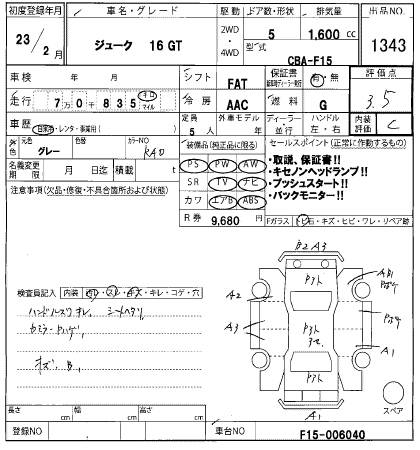 初度登録年月
車名・グレード
駆動
ドア数・形状
排気量
出品NO
23/2月
ジューク 16 GT
2WD
・
4WD
5
1,600 cc
型式
CBA-F15
1343
車検 年 月
シフト
FAT
保証書
有・無
評価点
走行 7万0千835 キロ マイル
冷房
AAC
燃料
G
3.5
車歴
自家用・レンタ・事業用( )
定員
5人
外車モデル
年
ディーラー・並行
ハンドル
左・右
内装評価
C
元色
グレー
色替
カラーNO
KAD
装備品(純正品に限る)
PS PW AW
SR TV ナビ
カワ エアB ABS
セールスポイント(正常に作動するもの)
・取説、保証書!!
・キセノンヘッドランプ!!
・プッシュスタート!!
・バックモニター!!
名義変更期限 月 日迄
積載 t
注意事項(欠品・修復・不具合箇所および状態)
R券 9,680円
Fガラス
トビ石・キズ・ヒビ・ワレ・リペア跡
検査員記入
内装
・キレ・コゲ・穴
ハンドルスレ
キズ、B、
B2 A3
A2
A3
A1
A1
スペア
長さ cm
幅 cm
高さ cm
登録NO
車台NO
F15-006040